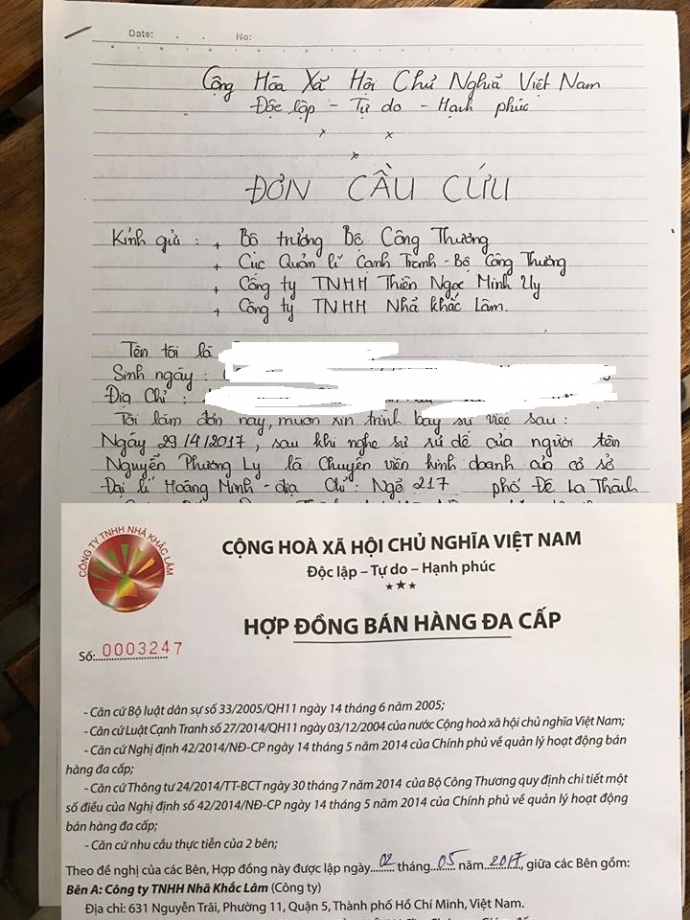 Date: . . No:
Cộng Hòa Xã Hội Chủ Nghĩa Việt Nam
Độc lập - Tự do - Hạnh phúc
ĐƠN CẦU CỨU
Kính gửi : + Bộ trưởng Bộ Công Thương
+ Cục Quản lí Cạnh Tranh - Bộ Công Thương
+ Công ty TNHH Thiên Ngọc Minh Uy
+ Công ty TNHH Nhã Khắc Lâm.
Tên tôi là
Sinh ngày :
Địa Chỉ :
Tôi làm đơn này, muốn xin trình bày sự việc sau:
Ngày 29/4/2017, sau khi nghe sự dụ dỗ của người tên
Nguyễn Phương Ly là Chuyên viên kinh doanh của cơ sở
Đại lí Hoàng Minh - địa Chỉ : Ngõ 217 phố Đê La Thành
CÔNG TY TNHH NHÃ KHẮC LÂM
CỘNG HOÀ XÃ HỘI CHỦ NGHĨA VIỆT NAM
Độc lập – Tự do – Hạnh phúc
HỢP ĐỒNG BÁN HÀNG ĐA CẤP
Số: 0003247
- Căn cứ Bộ luật dân sự số 33/2005/QH11 ngày 14 tháng 6 năm 2005;
- Căn cứ Luật Cạnh Tranh số 27/2014/QH11 ngày 03/12/2004 của nước Cộng hoà xã hội chủ nghĩa Việt Nam;
- Căn cứ Nghị định 42/2014/NĐ-CP ngày 14 tháng 5 năm 2014 của Chính phủ về quản lý hoạt động bán
hàng đa cấp;
- Căn cứ Thông tư 24/2014/TT-BCT ngày 30 tháng 7 năm 2014 của Bộ Công Thương quy định chi tiết một
số điều của Nghị định số 42/2014/NĐ-CP ngày 14 tháng 5 năm 2014 của Chính phủ về quản lý hoạt động
bán hàng đa cấp;
- Căn cứ nhu cầu thực tiễn của 2 bên;
Theo đề nghị của các Bên, Hợp đồng này được lập ngày 02 tháng 05 năm 2017, giữa các Bên gồm:
Bên A: Công ty TNHH Nhã Khắc Lâm (Công ty)
Địa chỉ: 631 Nguyễn Trãi, Phường 11, Quận 5, Thành phố Hồ Chí Minh, Việt Nam.